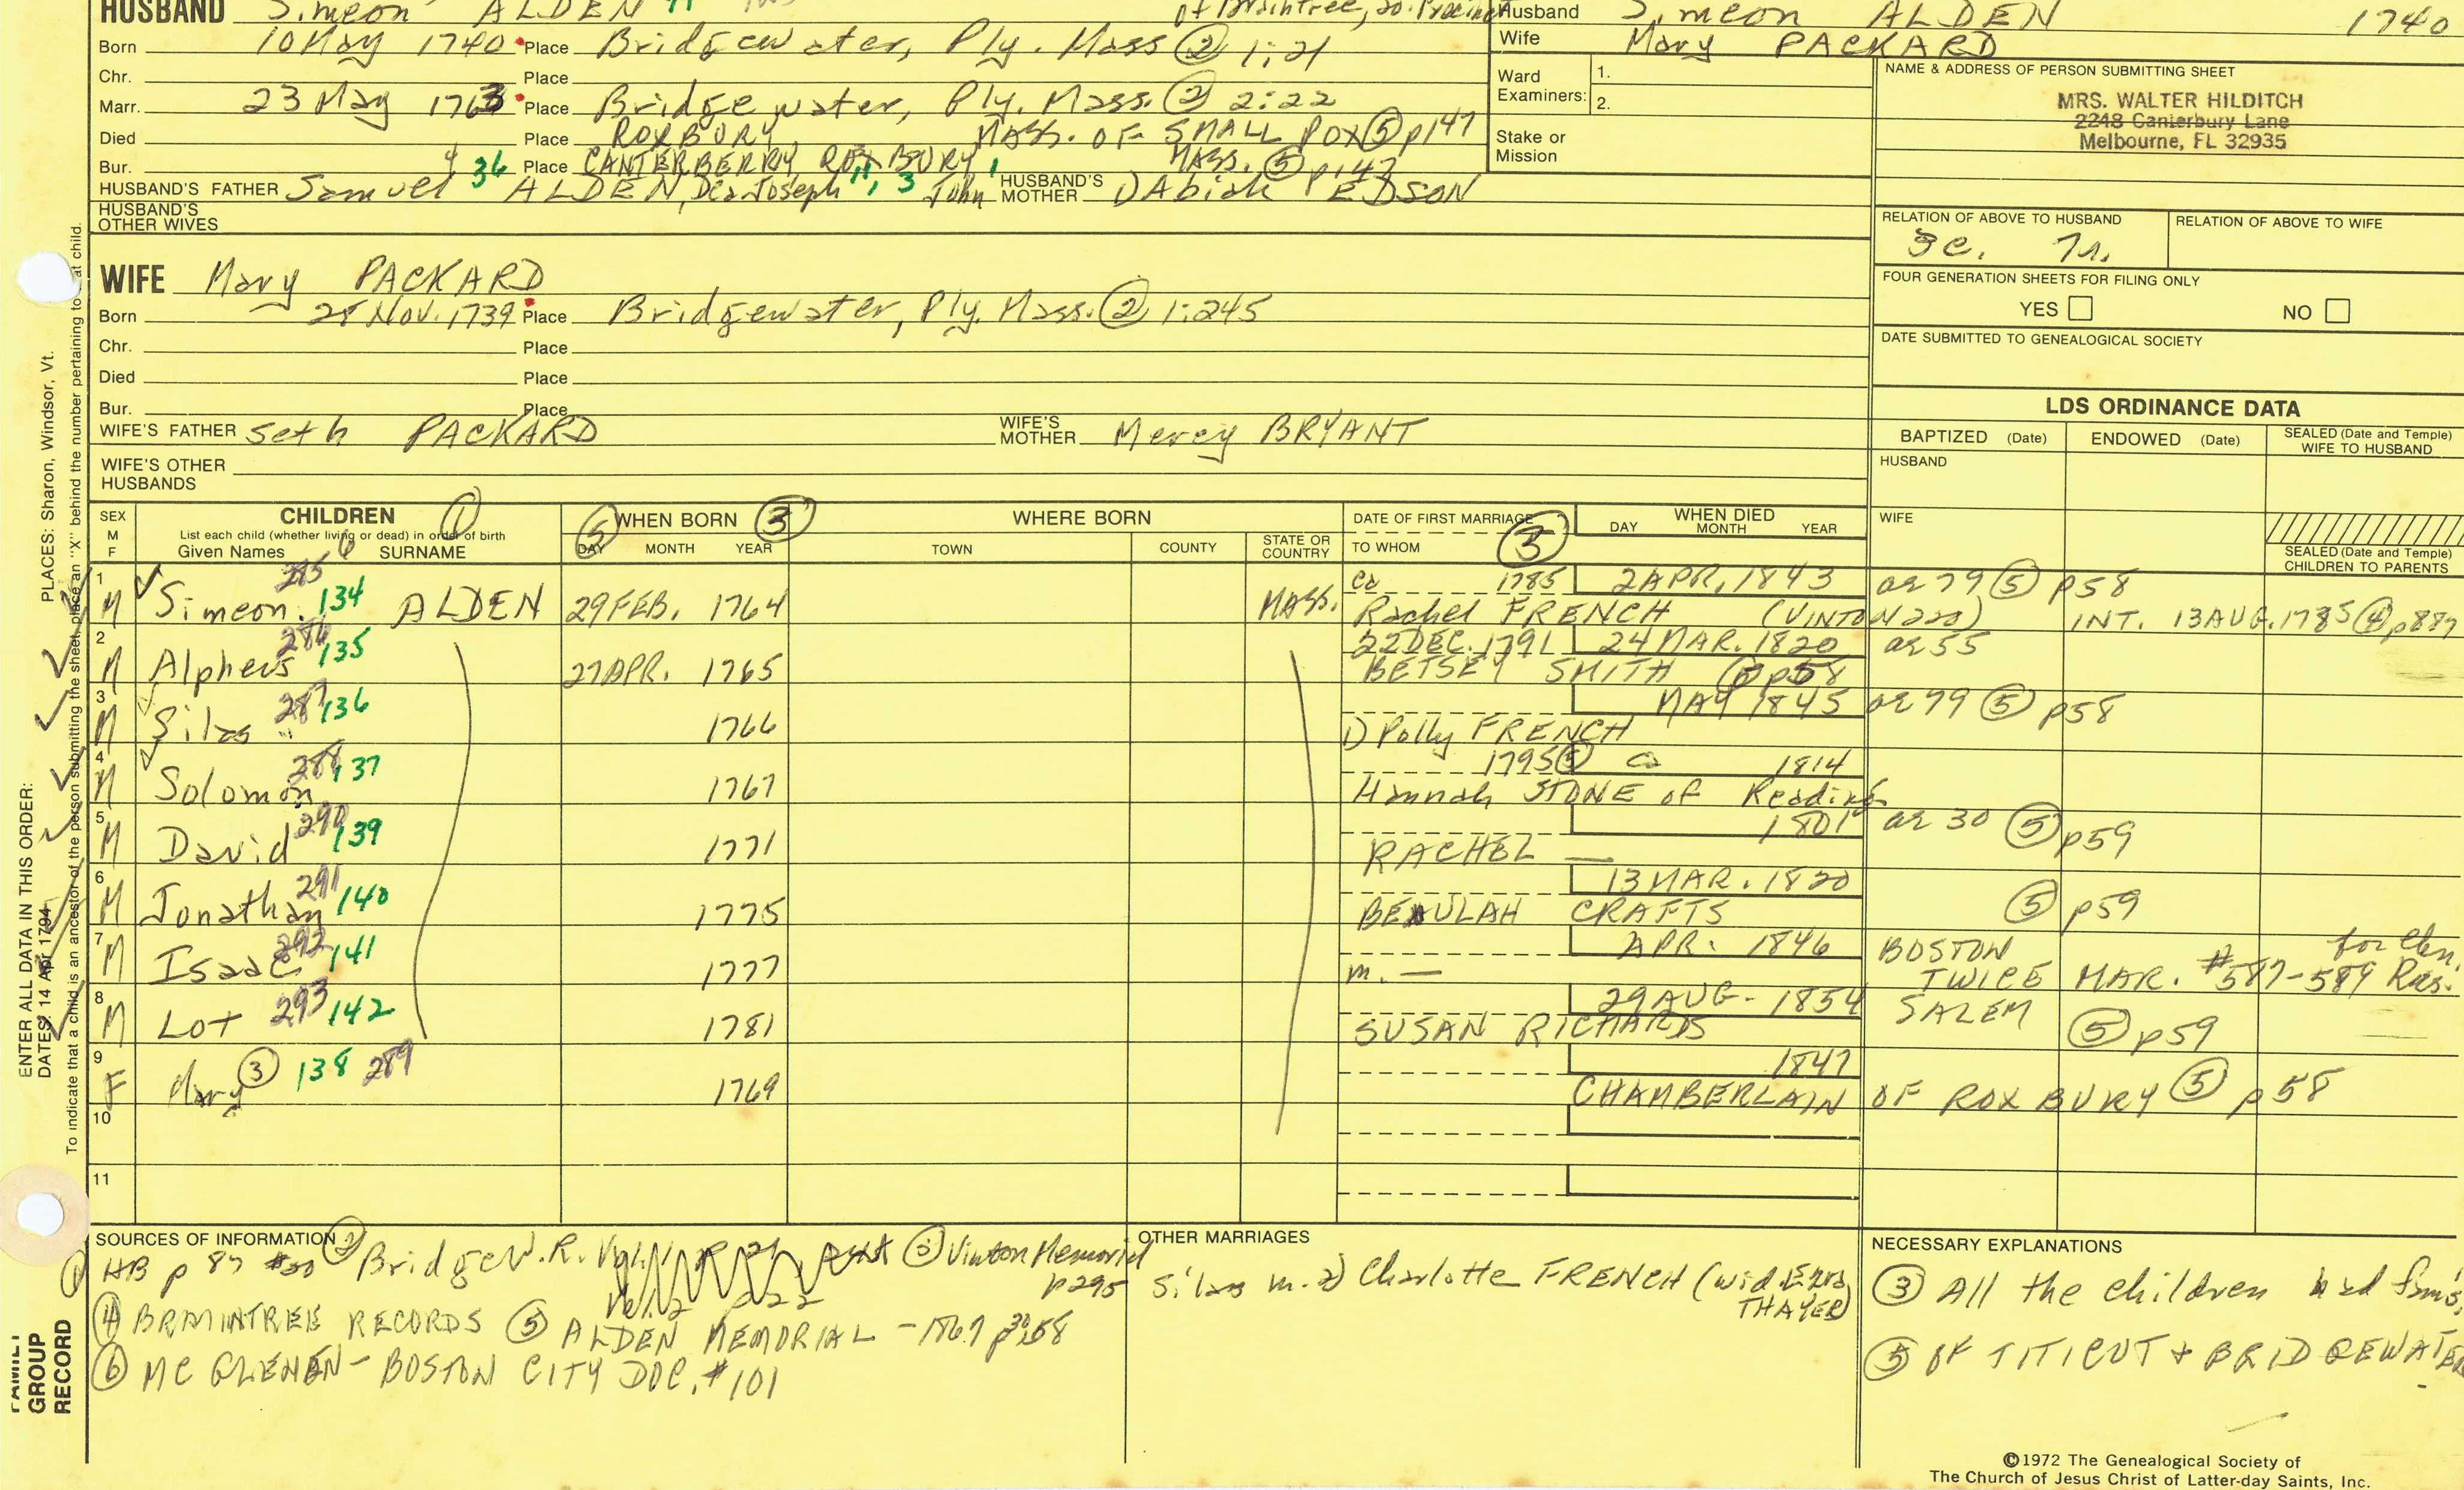 HUSBAND Simeon ALDEN
of Braintree, So. Precinct
Born 10 May 1740 Place Bridgewater, Ply. Mass ② 1:21
Chr. Place
Marr. 23 May 1763 Place Bridgewater, Ply. Mass. ② 2:22
Died Place ROXBURY MASS. OF SMALL POX ⑤ p147
Bur. Place CANTERBERRY, ROXBURY, MASS. ⑤ p.147
HUSBAND'S FATHER Samuel 4 36 ALDEN, Dea. Joseph 11, 3 John 1 HUSBAND'S MOTHER 1) Abiah EDSON
HUSBAND'S OTHER WIVES
WIFE Mary PACKARD
Born 28 Nov. 1739 Place Bridgewater, Ply. Mass. ② 1:245
Chr. Place
Died Place
Bur. Place
WIFE'S FATHER Seth PACKARD WIFE'S MOTHER Mercy BRYANT
WIFE'S OTHER HUSBANDS
Husband Simeon ALDEN 1740
Wife Mary PACKARD
Ward Examiners: 1.
2.
Stake or Mission
NAME & ADDRESS OF PERSON SUBMITTING SHEET
MRS. WALTER HILDITCH
2248 Canterbury Lane
Melbourne, FL 32935
RELATION OF ABOVE TO HUSBAND RELATION OF ABOVE TO WIFE
3c. 7r.
FOUR GENERATION SHEETS FOR FILING ONLY
YES NO
DATE SUBMITTED TO GENEALOGICAL SOCIETY
LDS ORDINANCE DATA
BAPTIZED (Date) ENDOWED (Date) SEALED (Date and Temple) WIFE TO HUSBAND
HUSBAND
WIFE
SEALED (Date and Temple) CHILDREN TO PARENTS
SEX M F CHILDREN ① WHEN BORN ③ WHERE BORN DATE OF FIRST MARRIAGE WHEN DIED
List each child (whether living or dead) in order of birth
Given Names 6 SURNAME ⑤ DAY MONTH YEAR TOWN COUNTY STATE OR COUNTRY TO WHOM ③ DAY MONTH YEAR
1 M Simeon 285 134 ALDEN 29 FEB. 1764 MASS. ca 1785 2 APR. 1843 ae 79 ⑤ p58
Rachel FRENCH (VINTON 220) INT. 13 AUG. 1785 ④ p887
2 M Alpheus 286 135 27 APR. 1765 22 DEC. 1791 24 MAR. 1820 ae 55
BETSEY SMITH ⑤ p58
3 M Silas 287 136 1766 MAY 1845 ae 79 ⑤ p58
1) Polly FRENCH
4 M Solomon 288 137 1767 1795 ⑤ ca 1814
Hannah STONE of Reading
5 M David 290 139 1771 1801 ae 30 ⑤ p59
RACHEL —
6 M Jonathan 291 140 1775 13 MAR. 1820 ⑤ p59
BEULAH CRAFTS
7 M Isaac 292 141 1777 APR. 1846 BOSTON
m. — TWICE MAR. #587-589 for chn.
8 M Lot 293 142 1781 29 AUG. 1854 SALEM ⑤ p59
SUSAN RICHARDS
9 F Mary ③ 138 289 1769 1847
CHAMBERLAIN OF ROXBURY ⑤ p58
10
11
SOURCES OF INFORMATION
① HB p 87 #30 ② Bridgew. R. Vol. ③ Vinton Memorial p295
④ BRAINTREE RECORDS ⑤ ALDEN MEMORIAL - 1867 p 30, 58
⑥ MC GLENEN - BOSTON CITY DOC. #101
OTHER MARRIAGES
Silas m. 2) Charlotte FRENCH (wid. Ezra THAYER)
NECESSARY EXPLANATIONS
③ All the children had fam's.
⑤ OF TITICUT + BRIDGEWATER
©1972 The Genealogical Society of
The Church of Jesus Christ of Latter-day Saints, Inc.
ENTER ALL DATA IN THIS ORDER:
DATES: 14 Apr 1794 PLACES: Sharon, Windsor, Vt.
To indicate that a child is an ancestor of the person submitting the sheet, place an "X" behind the number pertaining to that child.
FAMILY GROUP RECORD